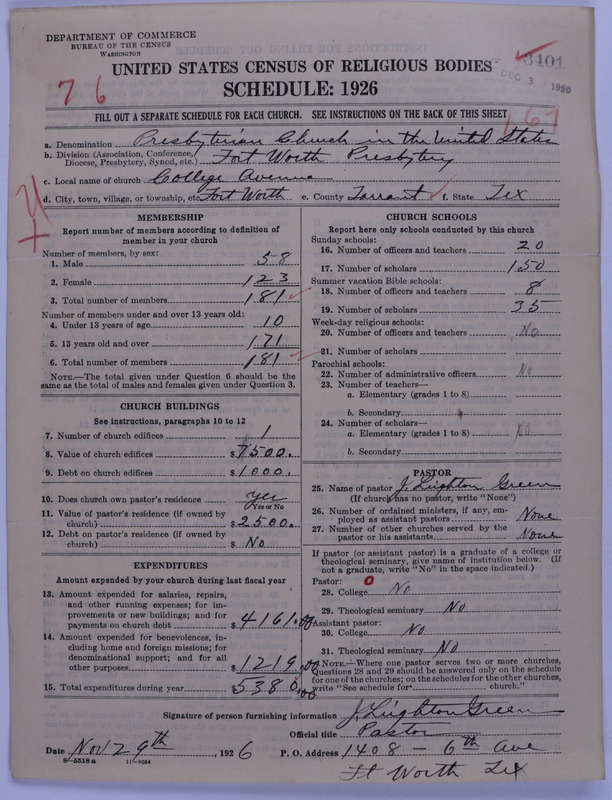 DEPARTMENT OF COMMERCE
BUREAU OF THE CENSUS
WASHINGTON
3401
DEC 3 1926
UNITED STATES CENSUS OF RELIGIOUS BODIES
SCHEDULE: 1926
7 6
FILL OUT A SEPARATE SCHEDULE FOR EACH CHURCH. SEE INSTRUCTIONS ON THE BACK OF THIS SHEET
167
a. Denomination Presbyterian Church in the United States
b. Division (Association, Conference, Diocese, Presbytery, Synod, etc.) Fort Worth Presbytery
c. Local name of church College Avenue
d. City, town, village, or township, etc. Fort Worth e. County Tarrant f. State Tex
MEMBERSHIP
Report number of members according to definition of member in your church
Number of members, by sex:
1. Male 58
2. Female 123
3. Total number of members 181
Number of members under and over 13 years old:
4. Under 13 years of age 10
5. 13 years old and over 171
6. Total number of members 181
NOTE.—The total given under Question 6 should be the same as the total of males and females given under Question 3.
CHURCH BUILDINGS
See instructions, paragraphs 10 to 12
7. Number of church edifices 1
8. Value of church edifices $7500.
9. Debt on church edifices $1000.
10. Does church own pastor's residence yes
Yes or No
11. Value of pastor's residence (if owned by church) $2500.
12. Debt on pastor's residence (if owned by church) $ No
EXPENDITURES
Amount expended by your church during last fiscal year
13. Amount expended for salaries, repairs, and other running expenses; for improvements or new buildings; and for payments on church debt $4161.00
14. Amount expended for benevolences, including home and foreign missions; for denominational support; and for all other purposes $1219.00
15. Total expenditures during year $5380.00
CHURCH SCHOOLS
Report here only schools conducted by this church
Sunday schools:
16. Number of officers and teachers 20
17. Number of scholars 150
Summer vacation Bible schools:
18. Number of officers and teachers 8
19. Number of scholars 35
Week-day religious schools:
20. Number of officers and teachers No
21. Number of scholars
Parochial schools:
22. Number of administrative officers No
23. Number of teachers—
a. Elementary (grades 1 to 8)
b. Secondary
24. Number of scholars—
a. Elementary (grades 1 to 8) No
b. Secondary
PASTOR
25. Name of pastor J. Leighton Green
(If church has no pastor, write "None")
26. Number of ordained ministers, if any, employed as assistant pastors None
27. Number of other churches served by the pastor or his assistants None
If pastor (or assistant pastor) is a graduate of a college or theological seminary, give name of institution below. (If not a graduate, write "No" in the space indicated.)
Pastor: 0
28. College No
29. Theological seminary No
Assistant pastor:
30. College No
31. Theological seminary No
NOTE.—Where one pastor serves two or more churches, Questions 28 and 29 should be answered only on the schedule for one of the churches; on the schedules for the other churches, write "See schedule for church."
Signature of person furnishing information J. Leighton Green
Official title Pastor
Date Nov 29th, 1926 P. O. Address 1408 - 6th Ave
8-5518a 11-9054
Ft Worth Tex